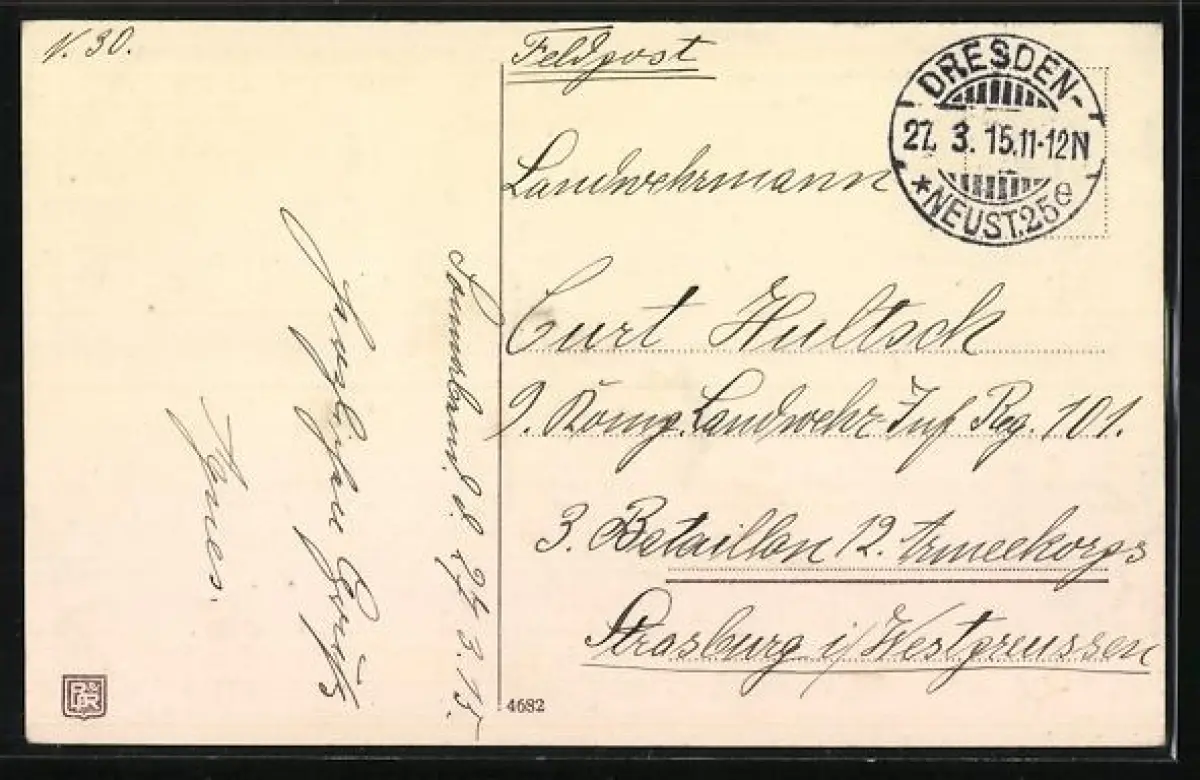 N. 30.
Feldpost
DRESDEN-
27. 3. 15. 11-12N
* NEUST. 25e
Landwehrmann
Curt Hultsch
9. Königl. Landwehr-Inf Reg. 101.
3. Bataillon 12. Armeekorps
Strasburg i/Westpreussen
Sonnabend. d. 27. 3. 15.
Herzlichen Gruß
Agnes.
4682